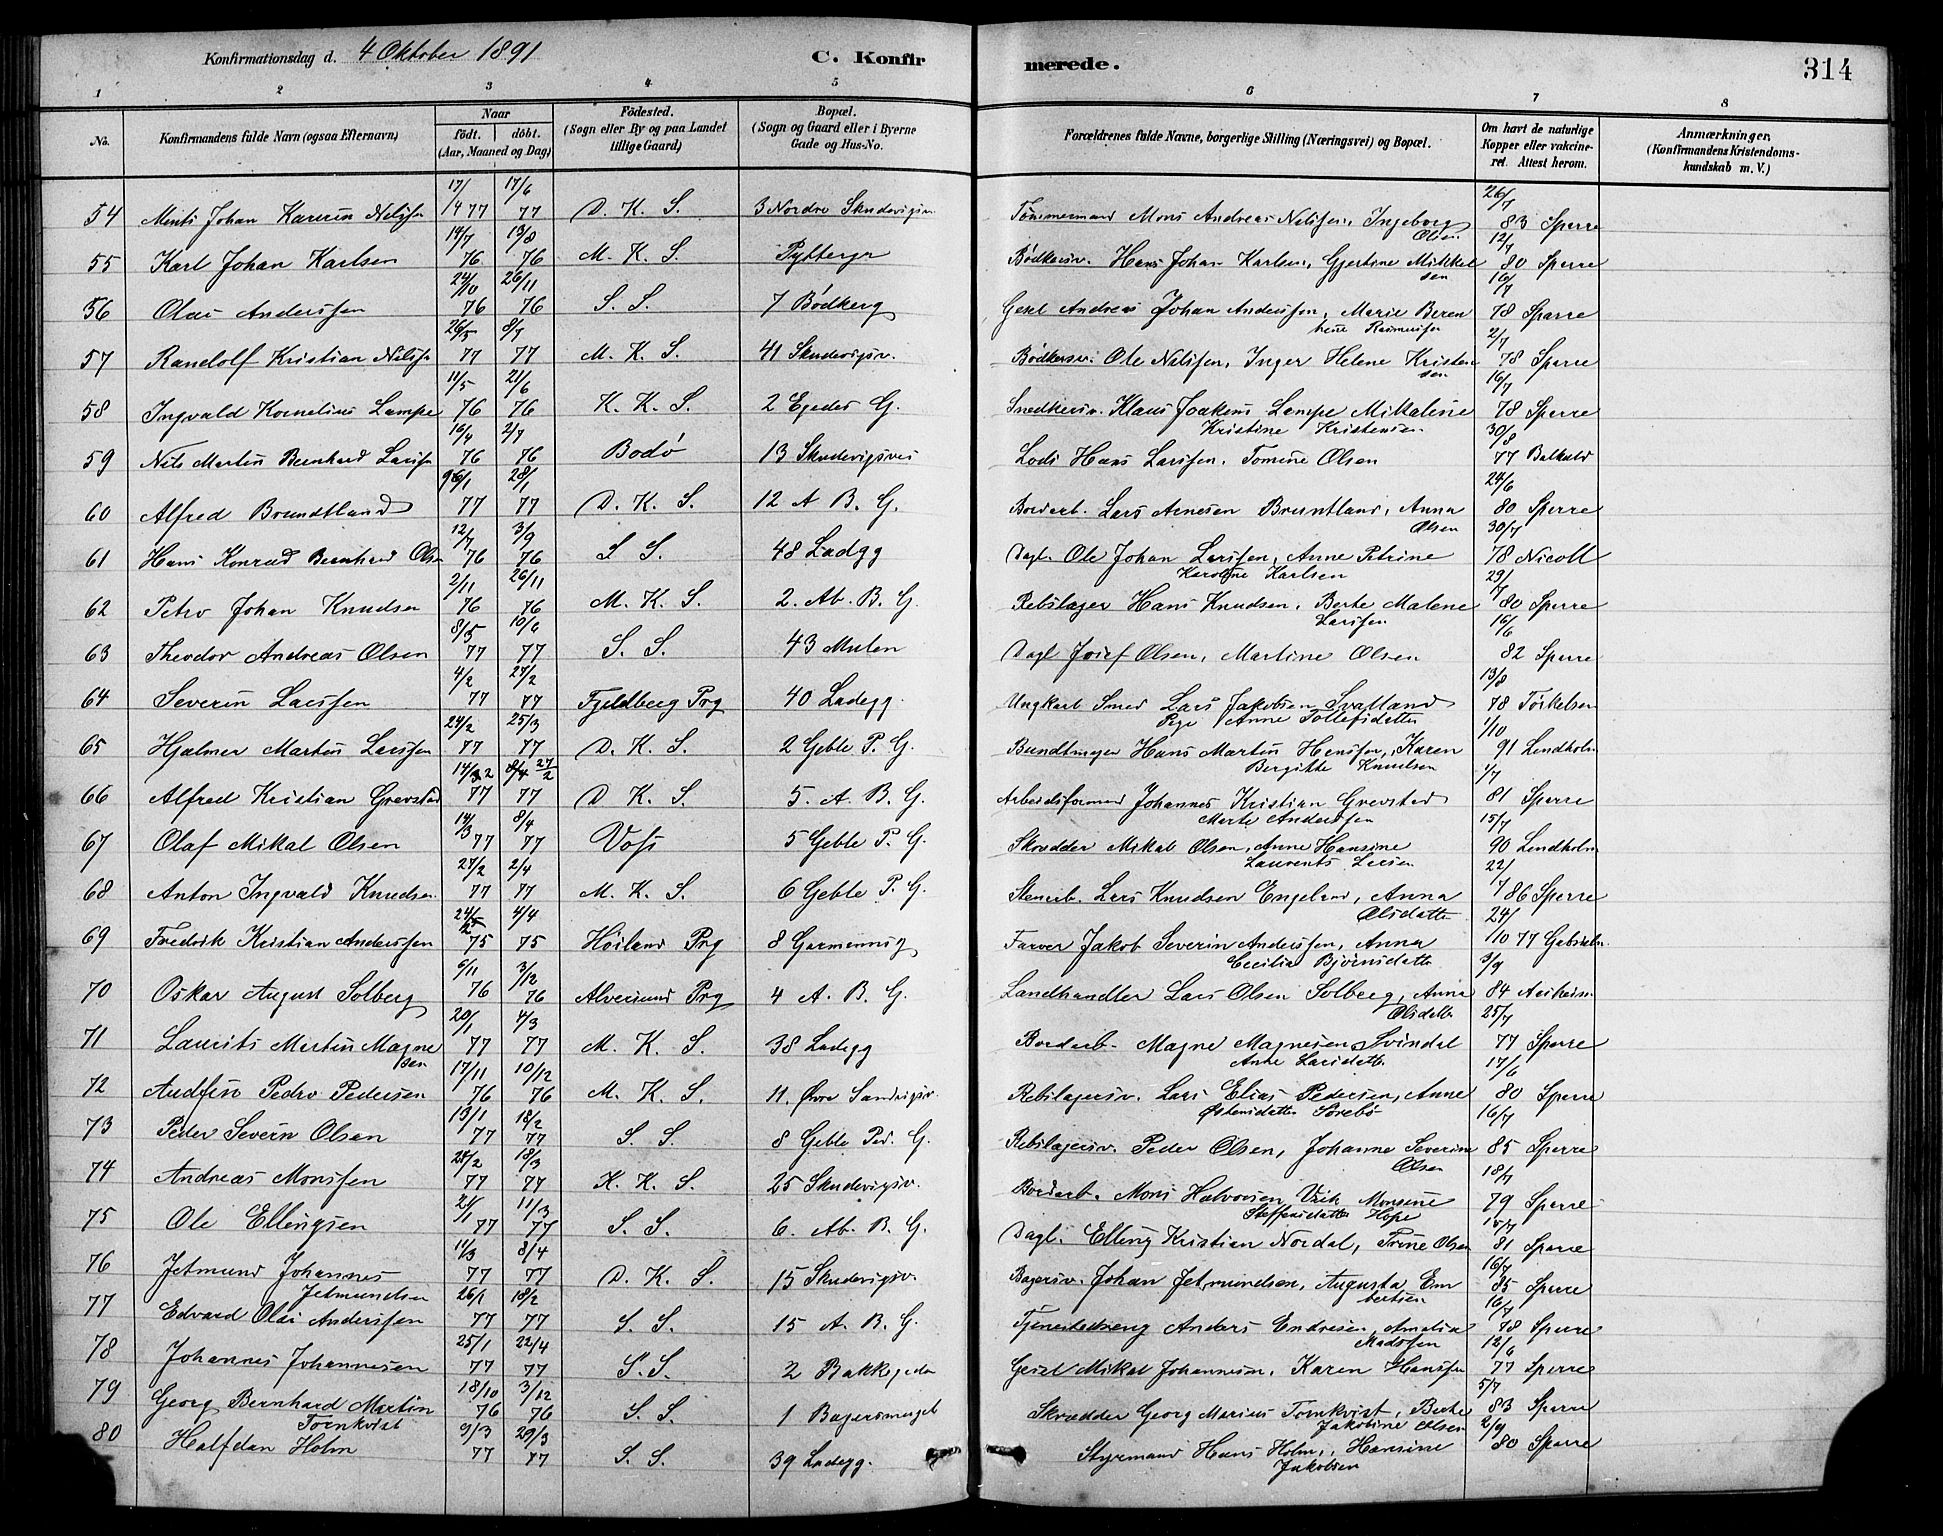 Konfirmationsdag d. 4 Oktober 1891
C. Konfirmerede.
314
1 2 3 4 5 6 7 8
No.
Konfirmandens fulde Navn (ogsaa Efternavn)
Naar
födt. döbt.
(Aar, Maaned og Dag)
Födested.
(Sogn eller By og paa Landet
tillige Gaard)
Bopæl.
(Sogn og Gaard eller i Byerne
Gade og Hus-No.
Forældrenes fulde Navne, borgerlige Stilling (Næringsvei) og Bopæl.
Om havt de naturlige
Kopper eller vakcine-
ret. Attest herom.
Anmærkninger,
(Konfirmandens Kristendoms-
kundskab m. V.)
17/ 17/6 26/7
54 Johan Nilsen /4 77 77 D. K. S. 3 Nordre Skudevigsv. Tömmermand Mons Andreas Nilssen, Ingeborg 83 Sperre
14/7 13/8 Olsen 12/7
55 Karl Johan Karlsen 76 76 M. K. S. Bödkersv. Hans Johan Karlsen, Gjertine Mikkel 80 Sperre
24/10 26/11 sen 16/7
56 Olai Anderssen 76 76 S. S. 7 Bödkerg Gesel Andreas Johan Anderssen, Marie Beren 78 Sperre
26/5 8/7 tine Rasmussen 2/7
57 Randolf Kristian Nilssen 77 77 M. K. S. 41 Skudevigsv. Bödkersv. Ole Nilssen, Inger Helene Kristen 78 Sperre
11/5 21/6 sen 16/7
58 Ingvald Kornelius Lampe 76 76 K. K. S. 2 Egedes G. Snedkersv. Klaus Joakim Lampe Mikkaline 78 Sperre
16/4 2/7 Kristine Kristensen 30/8
59 Nils Martin Bernhard Larssen 76 76 Bodö 13 Skudevigsvei Lods Hans Larssen, Tomine Olsen 77
26/1 28/1 24/6
60 Alfred Brundtland 77 77 D. K. S. 12 A B. G. Bordarb. Lars Arnesen Bruntland, Anna 80 Sperre
12/7 3/9 Olsen 30/7
61 Hans Konrad Bernhard Olsen 76 76 S S. 48 Ladegg Dagl. Ole Johan Larssen, Anne Petrine 78 Nicoll
2/11 26/11 Karoline Karlsen 29/
62 Petro Johan Knudsen 76 76 M. K. S. 2. Ab. B. G. Rebslager Hans Knudsen, Berte Malene 7 80 Sperre
8/5 10/6 Larssen 16/6
63 Theodor Andreas Olsen 77 77 S. S. 43 Mulen Dagl Josef Olsen, Martine Olsen 82 Sperre
4/2 27/2 13/8
64 Severin Larssen 77 77 Fjeldberg Prg 40 Ladegg. Ungkarl Smed Lars Jakobsen Svatland 78 Torkelsen
24/2 25/3 Pige Anne Tollefsdatter 1/10
65 Hjalmer Martin Larssen 77 77 D. K. S. 2 Geble P. G. Bundtmager Hans Martin Hanssen, Karen 91 Lindholm
14/2 8/4 27/2 Bergitte Knudsen 1/7
66 Alfred Kristian Grevstad 77 77 D K. S. 5. A. B. G. Arbeidsformand Johannes Kristian Grevstad 81 Sperre
14/3 8/4 Marte Anderssen 15/7
67 Olaf Mikal Olsen 77 77 Voss 5 Geble P. G. Skrædder Mikal Olsen, Anne Hansine 90 Lindholm
27/2 2/4 Laurents Larsen 22/
68 Anton Ingvald Knudsen 77 77 M. K. S. 6 Geble P. G. Stenarb. Lars Knudsen Engeland, Anna 7 86 Sperre
24/2 4/4 Olsdatter 24/
69 Fredrik Kristian Anderssen 75 75 Höiland Prg 8 Garmannsg Farver Jakob Severin Anderssen, Anna 10 77
6/11 3/12 Cecilia Bjornsdatter 3/9
70 Oskar August Solberg 76 76 Alversund Prg 4 A. B. G. Landhandler Lars Olsen Solberg, Anna 84
20/1 4/3 Olsdatter 25/7
71 Laurits Martin Magne 77 77 M. K. S. 38 Ladegg Bordarb. Magne Magnesen Svindal 77 Sperre
sen 17/11 10/12 Ane Larsdatter 17/6
72 Audfin Pedro Pedersen 76 76 M. K. S. 11. Övre Sandvigsv. Rebslagersv. Lars Elias Pedersen, Anne 80 Sperre
13/1 18/2 Östensdatter Sörebö 16/7
73 Peder Severin Olsen 77 77 S. S. 8 Geble Ped. G. Rebslagersv. Peder Olsen, Johanne Severine 85 Sperre
24/2 18/3 Olsen 18/7
74 Andreas Monssen 77 77 K. K. S. 25 Skudevigsv. Bordarb. Mons Halvorsen Monsine 79 Sperre
21/1 11/3 Steffensdatter Hope 15/7
75 Ole Ellingsen 77 77 S. S. 6. Ab. B. G. Dagl. Elling Kristian Nordal, Trine Olsen 81 Sperre
11/3 8/4 16/7
76 Jetmund Johannes 77 77 D. K. S. 15 Skudevigsv. Bagersv. Johan Jetmundsen, Augusta Em 85 Sperre
Jetmundsen 26/1 18/2 bertsen 16/7
77 Edvard Olai Anderssen 77 77 S. S. 15 A. B. G. Anders Endresen, Amalia 78 Sperre
25/1 22/4 Madssen 12/6
78 Johannes Johannesen 77 77 S. S. 2 Gesel Mikal Johannesen, Karen Hanssen 77 Sperre
18/10 3/12 5/7
79 Georg Bernhard Martin 76 76 S. S. 1 Bagersmuget Skrædder Georg Marius Tornkvist, Berte 83 Sperre
Tornkvist 9/3 29/3 Jakobine Olsen 2/9
80 Halfdan Holm 77 77 S. S. 39 Ladegg. Styrmand Hans Holm, Hansine 80 Sperre
Jakobsen